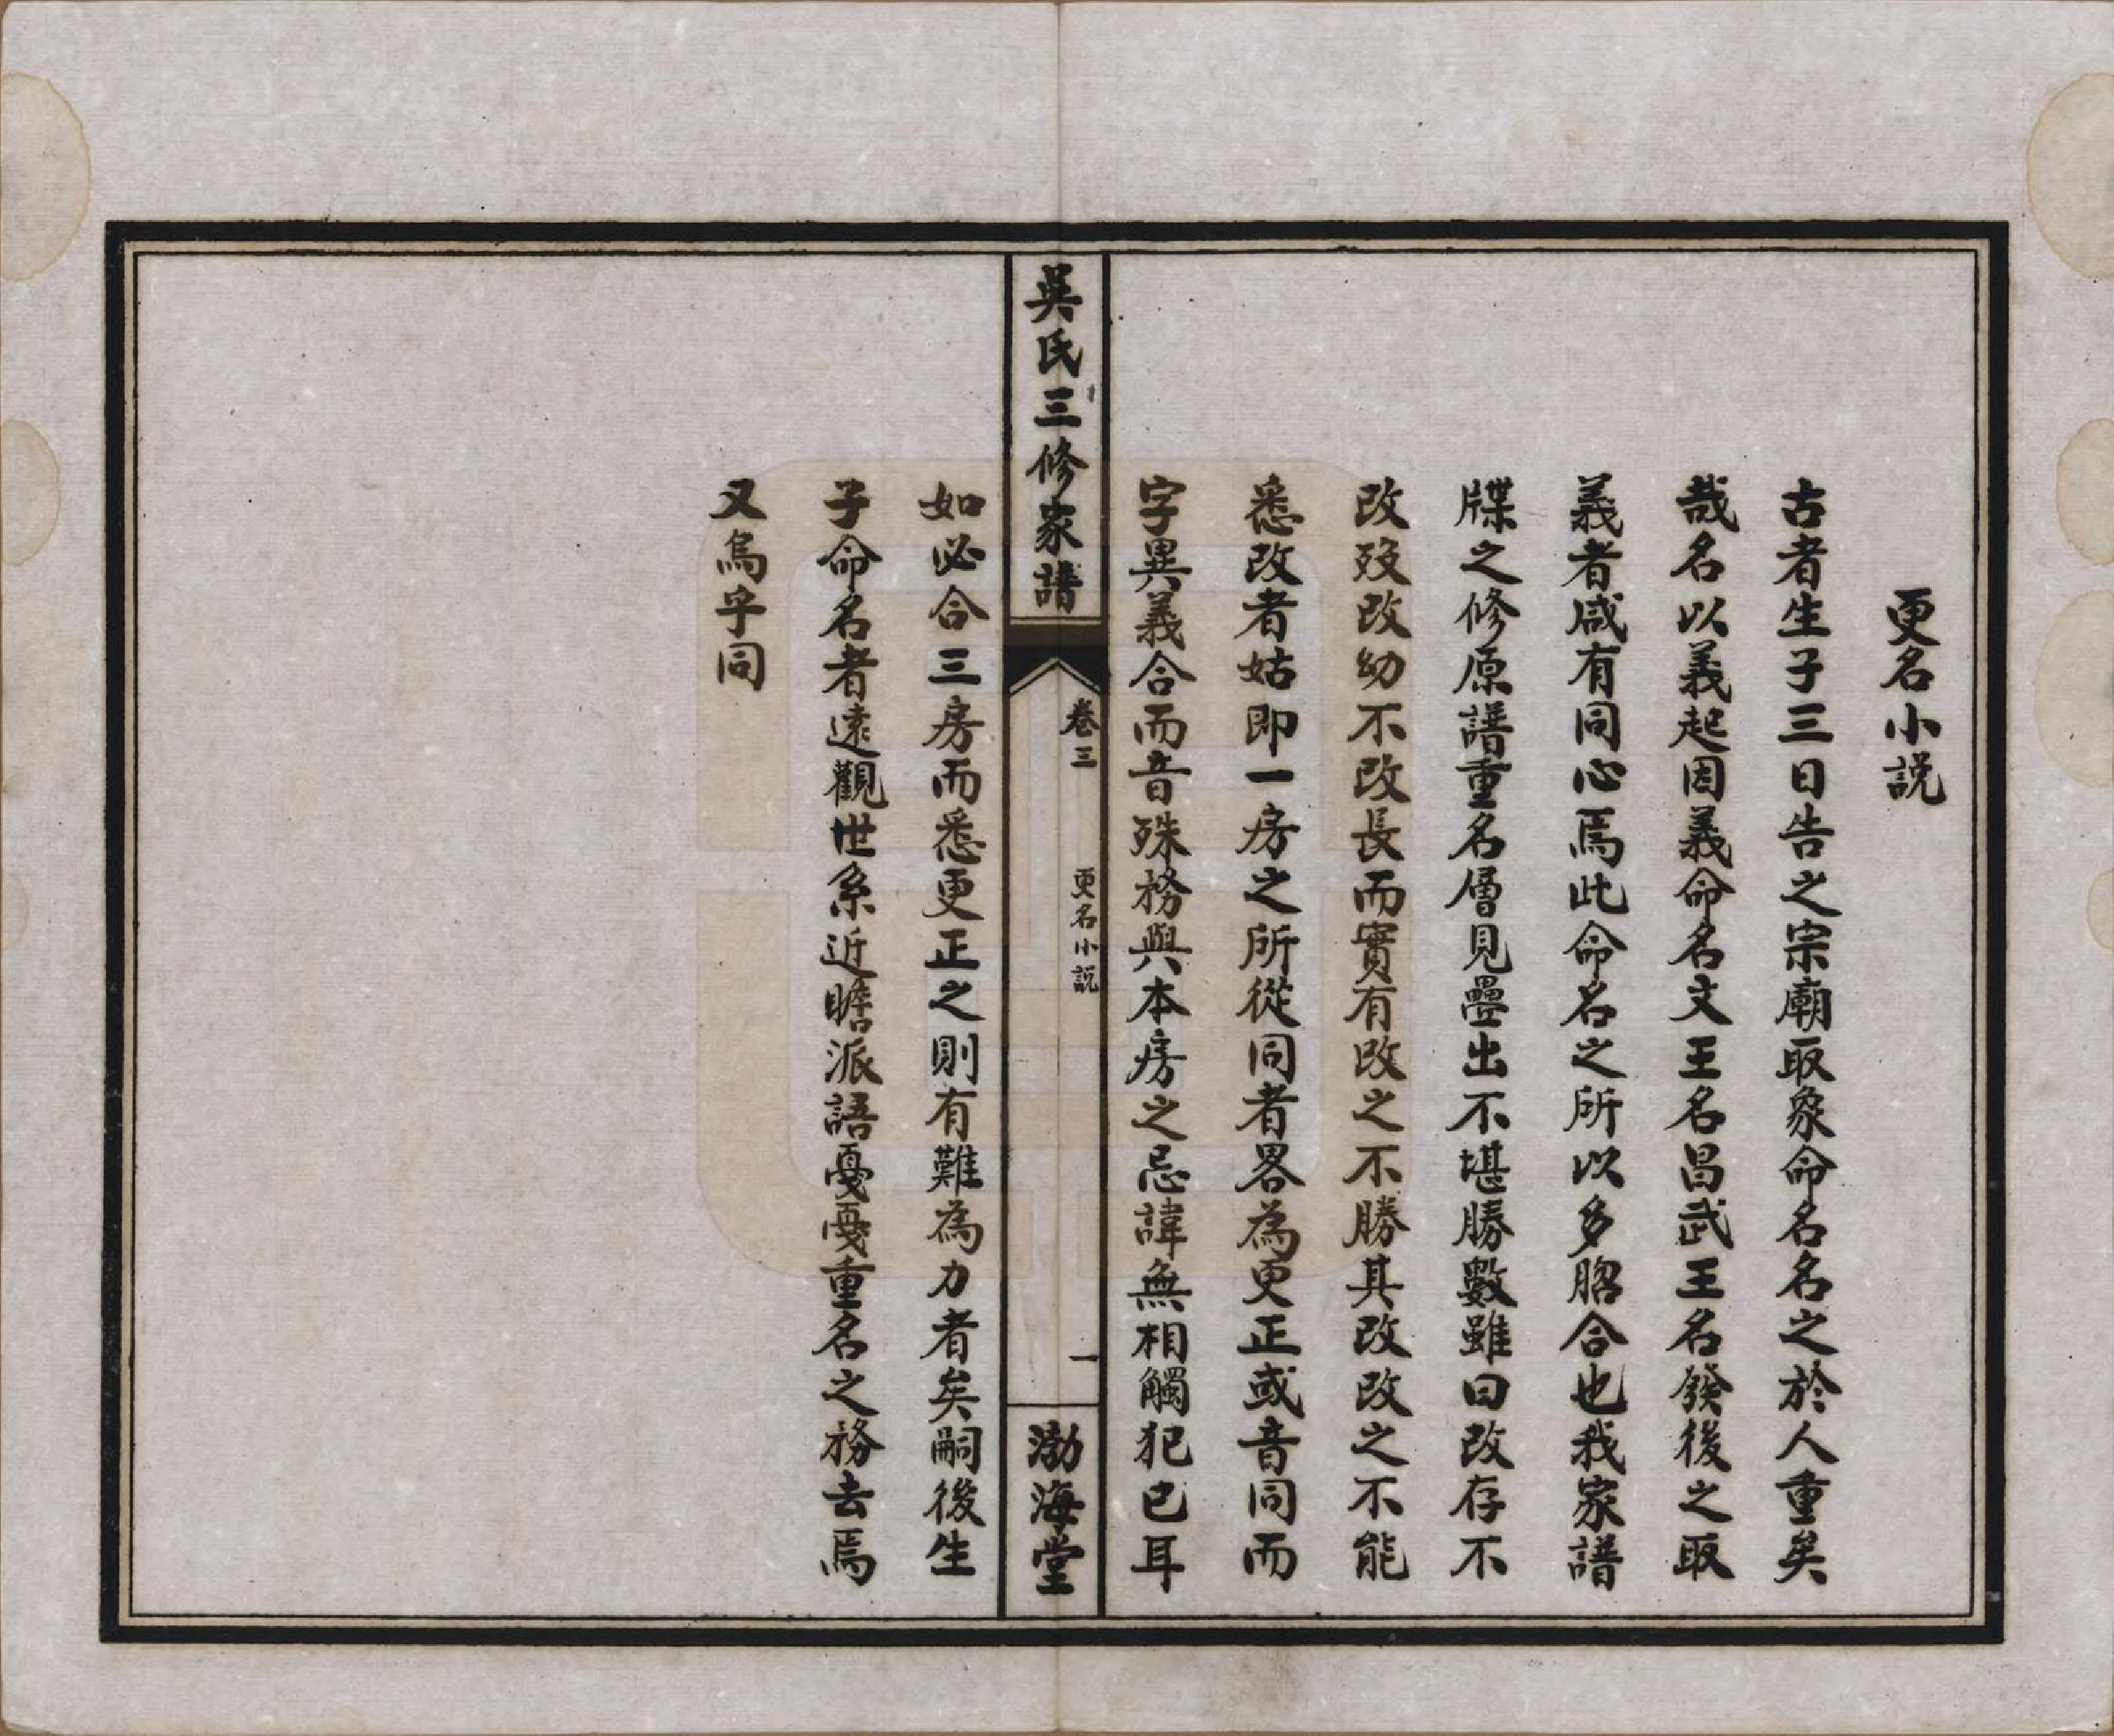 更名小説
古者生子三日告之宗廟取象命名名之於人重矣
哉名以義起因義命名文王名昌武王名發後之取
義者咸有同心焉此命名之所以多䐇合也我家譜
牒之修原譜重名層見疊出不堪勝數雖曰改存不
改歿改幼不改長而實有改之不勝其改改之不能
悉改者姑即一房之所從同者畧為更正或音同而
字異義合而音殊務與本房之忌諱無相觸犯已耳
吳氏三修家譜
卷三
更名小説
一
渤海堂
如必合三房而悉更正之則有難為力者矣嗣後生
子命名者遠觀世系近瞻派語戞戞重名之務去焉
又烏乎同